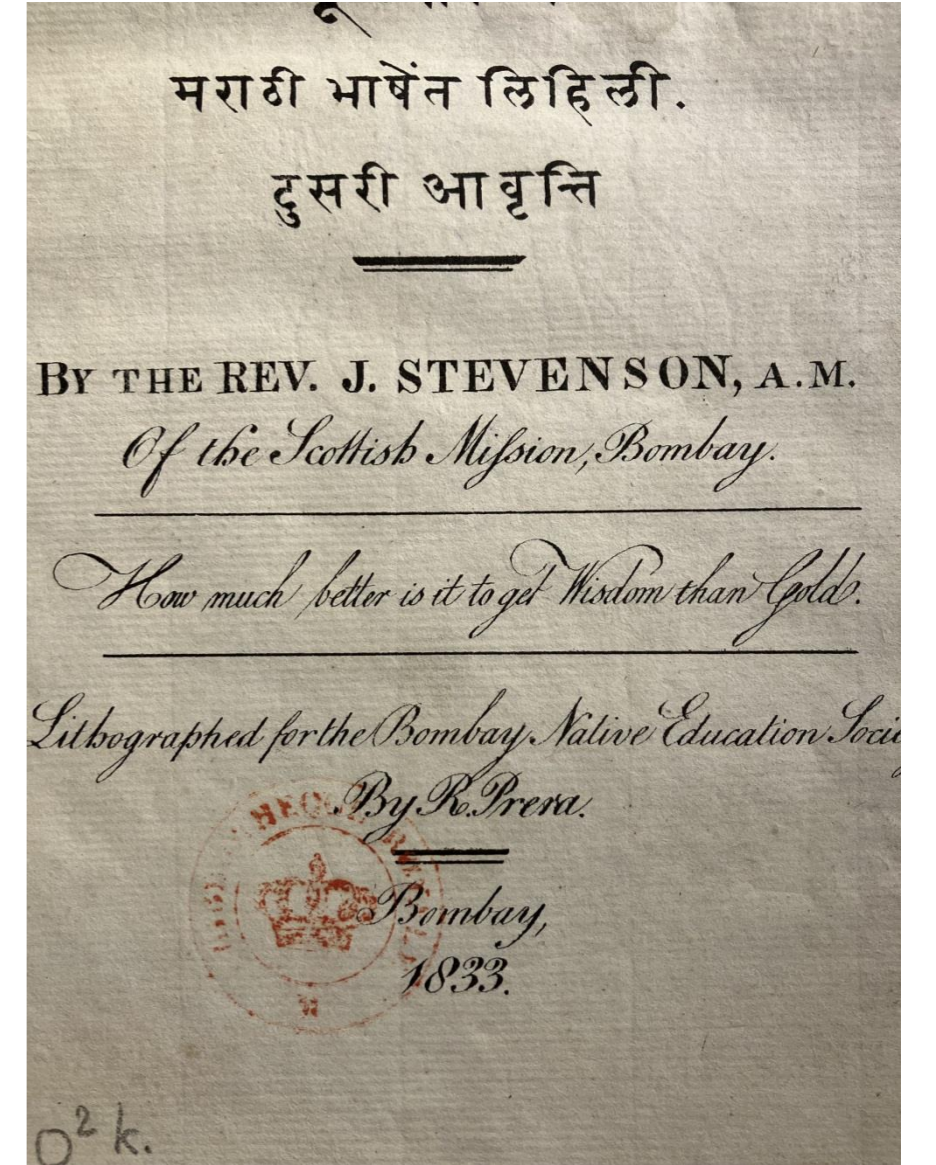 मराठी भाषेंत लिहिली.
दुसरी आवृत्ति
BY THE REV. J. STEVENSON, A.M.
Of the Scottish Miſsion, Bombay.
How much better is it to get Wisdom than Gold.
Lithographed for the Bombay Native Education Soci
By R. Prera.
Bombay,
1833.
O² k.